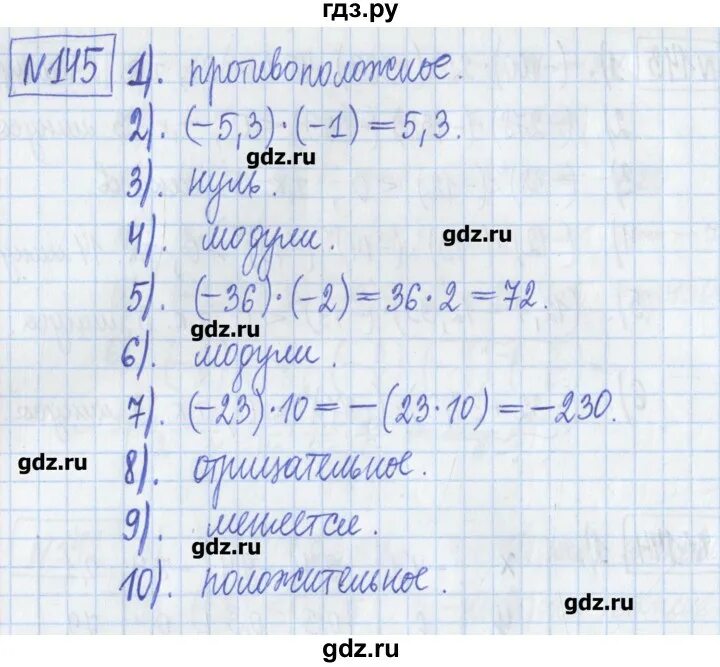 гдз.ру
№145 1). противоположное.
2). (-5,3)·(-1)=5,3.
gdz.ru
3). нуль.
4). модули.
gdz.ru
5). (-36)·(-2)=36·2=72.
gdz.ru
6). модули.
7). (-23)·10=-(23·10)=-230.
gdz.ru
8). отрицательное.
9). меняется.
gdz.ru
10). положительное.
gdz.ru
gdz.ru